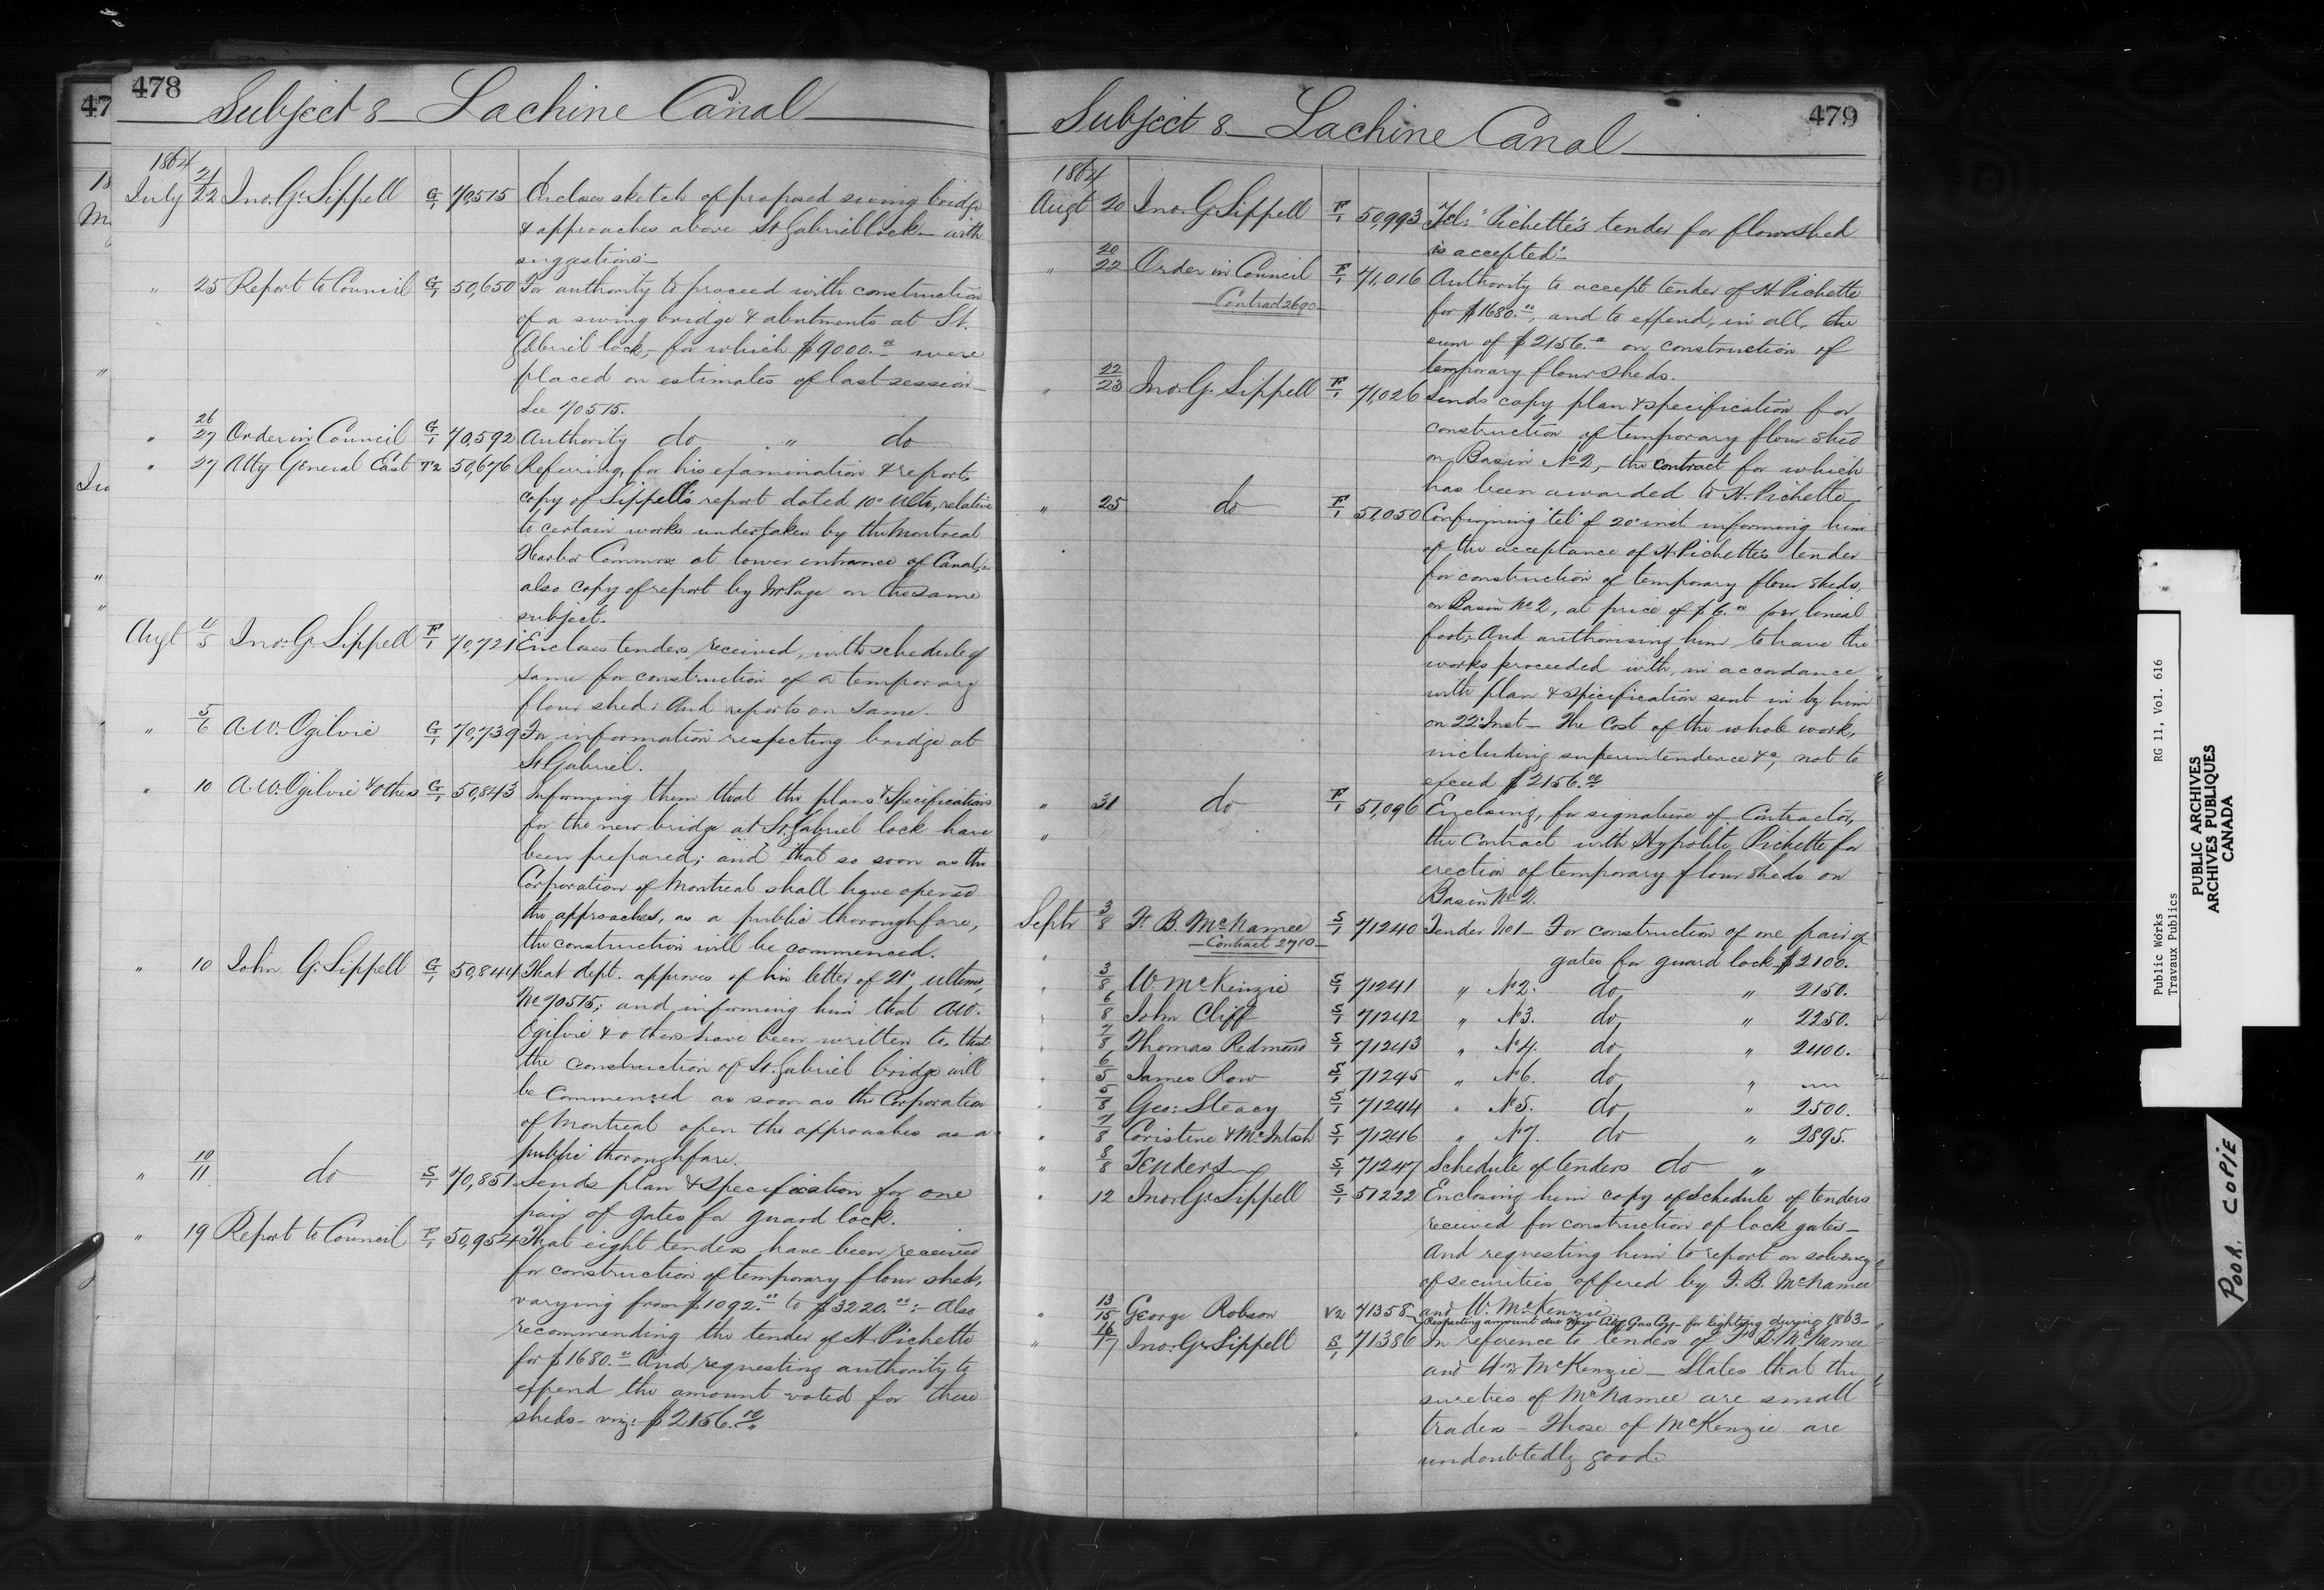 478
47
Subject 8 Lachine Canal
1864
July 21/22 Jno. G. Sippell G/1 70,515 Encloses sketch of proposed swing bridge
& approaches above St. Gabriel lock - with
suggestions -
" 25 Report to Council G/1 50,650 For authority to proceed with construction
of a swing bridge & abutments at St.
Gabriel lock, for which $9000.00 were
placed on estimates of last session -
See 70515.
" 26/27 Order in Council G/1 70,592 Authority do " do
" 27 Atty General East T2 50,676 Referring, for his examination & report,
copy of Sippell's report dated 10th Ulto, relative
to certain works undertaken by the Montreal
Harbor Commrs: at lower entrance of Canal, -
also copy of report by Mr Page on the same
subject.
Augt 4/5 Jno. G. Sippell F/1 70,721 Encloses tenders received, with schedule of
same for construction of a temporary
flour shed: And reports on same.
" 5/6 A.W. Ogilvie G/1 70,739 For information respecting bridge at
St. Gabriel.
" 10 A.W. Ogilvie & others G/1 50,843 Informing them that the plans & specifications
for the new bridge at St. Gabriel lock have
been prepared; and that so soon as the
Corporation of Montreal shall have opened
the approaches, as a public thoroughfare,
the construction will be commenced.
" 10 John G. Sippell G/1 50,844 That dept. approves of his letter of 21st ultimo,
No 70515; and informing him that A.W.
Ogilvie & others have been written to, that
the construction of St. Gabriel bridge will
be commenced as soon as the Corporation
of Montreal open the approaches as a
public thoroughfare.
" 10/11 do S/1 70,851 Sends plan & specification for one
pair of gates for guard lock.
" 19 Report to Council F/1 50,954 That eight tenders have been received
for construction of temporary flour sheds,
varying from $1092.00 to $3220.00: - Also
recommending the tender of H. Pichette
for $1680.00 And requesting authority to
expend the amount voted for these
sheds - viz: $2156.10
479
Subject 8. Lachine Canal
1864
Augt 20 Jno. G. Sippell F/1 50,993 Tel: "Pichette's tender for flour shed
is accepted".
" 20/22 Order in Council F/1 71,016 Authority to accept tender of H. Pichette
Contract 2690
for $1680.00, and to expend, in all, the
sum of $2156.00 on construction of
temporary flour sheds.
" 22/23 Jno. G. Sippell F/1 71,026 Sends copy plan & specification for
construction of temporary flour shed
on Basin No 2, - the contract for which
has been awarded to H. Pichette
" 25 do F/1 51,050 Confirming "tel" of 20th inst informing him
of the acceptance of H. Pichette's tender
for construction of temporary flour sheds,
on Basin No 2, at price of $6.00 per lineal
foot; And authorising him to have the
works proceeded with, in accordance
with plan & specification sent in by him
on 22d Inst - The cost of the whole work,
including superintendence &c, not to
exceed $2156.00
" 31 do F/1 51,096 Enclosing, for signature of Contractor,
the Contract with Hypolite Pichette for
erection of temporary flour sheds on
Basin No 2.
Septr 3/8 F. B. McNamee S/1 71240 Tender No 1 - For construction of one pair of
Contract 2710
gates for guard lock $2100.
" 3/8 W. McKenzie S/1 71241 " No 2. do, " 2150.
" 6/8 John Cliff S/1 71242 " No 3. do, " 2250.
" 7/8 Thomas Redmond S/1 71243 " No 4. do, " 2400.
" 6/5 James Row S/1 71245 " No 6. do, "
" 5/8 Geo: Steacy S/1 71244 " No 5. do, " 2500.
" 7/8 Coristine & McIntosh S/1 71246 " No 7. do " 2895.
" 8/8 Tenders S/1 71247 Schedule of tenders do "
" 12 Jno. G. Sippell S/1 51222 Enclosing him copy of Schedule of tenders
received for construction of lock gates -
And requesting him to report on solvency
of securities offered by F. B. McNamee
and W. McKenzie
" 13/15 George Robson V2 71358 Respecting amount due New City Gas Coy - for lighting during 1863 -
" 16/17 Jno. G. Sippell S/1 71386 In reference to tenders of F. B. McNamee
and Wm McKenzie - States that the
sureties of McNamee are small
traders - Those of McKenzie are
undoubtedly good.
Public Works RG 11, Vol. 616
Travaux Publics
PUBLIC ARCHIVES
ARCHIVES PUBLIQUES
CANADA
POOR COPIE